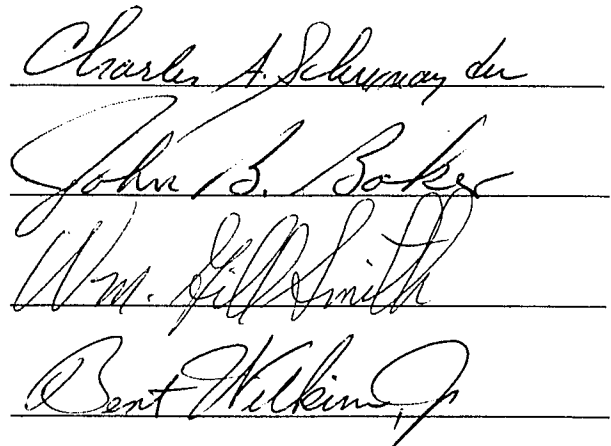 Charles A.
John B. Baker
Wm. Gill Smith
Bert Wilkins, Jr